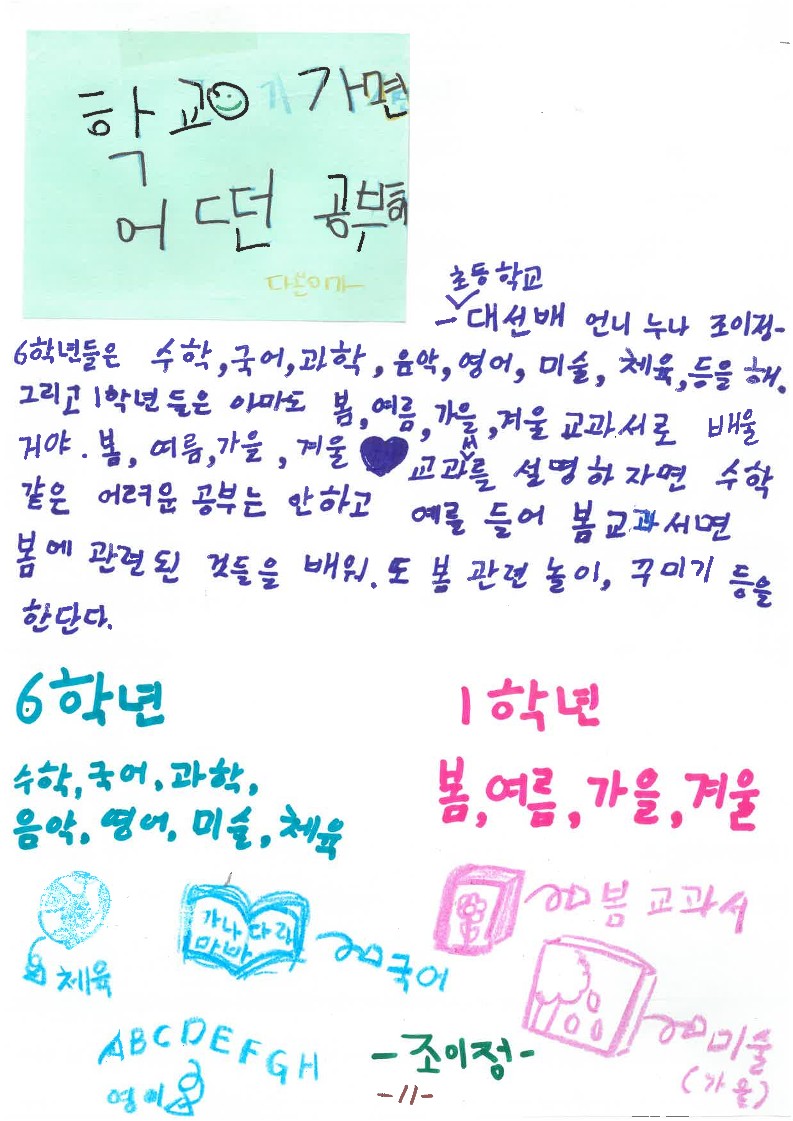 학교 가면
어떤 공부해
다본이가
초등학교
- 대선배 언니 누나 조이정-
6학년들은 수학,국어,과학,음악,영어,미술,체육,등을 해.
그리고 1학년들은 아마도 봄,여름,가을,겨울 교과서로 배울
거야. 봄, 여름,가을,겨울 ♥ 교과를 설명하자면 수학
같은 어려운 공부는 안하고 예를 들어 봄교과서면
봄에 관련된 것들을 배워. 또 봄 관련 놀이, 꾸미기 등을
한단다.
6학년
1학년
수학,국어,과학,
음악,영어,미술,체육
봄,여름,가을,겨울
가나다라
마바
봄 교과서
체육
국어
미술
(가을)
ABCDEFGH
영어
-조이정-
-11-